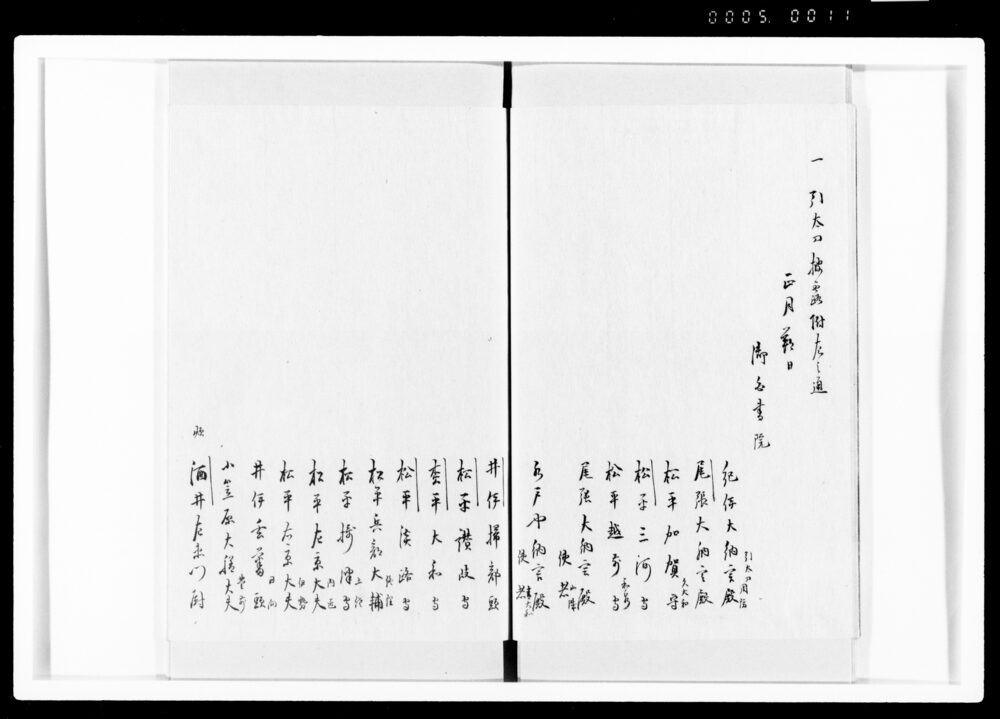 0005. 0011
一 引太刀披露附左之通
正月朔日
御白書院
紀伊大納言殿
引太刀周防
尾張大納言殿
久大和
松平加賀守
松平三河守
松平越前守
尾張大納言殿
使者
水戸中納言殿
使者
井伊掃部頭
松平讃岐守
松平大和守
松平淡路守
松平兵部大輔
松平摂津守
松平左京大夫
松平右京大夫
井伊兵部
小笠原大膳大夫
酒井左衛門尉